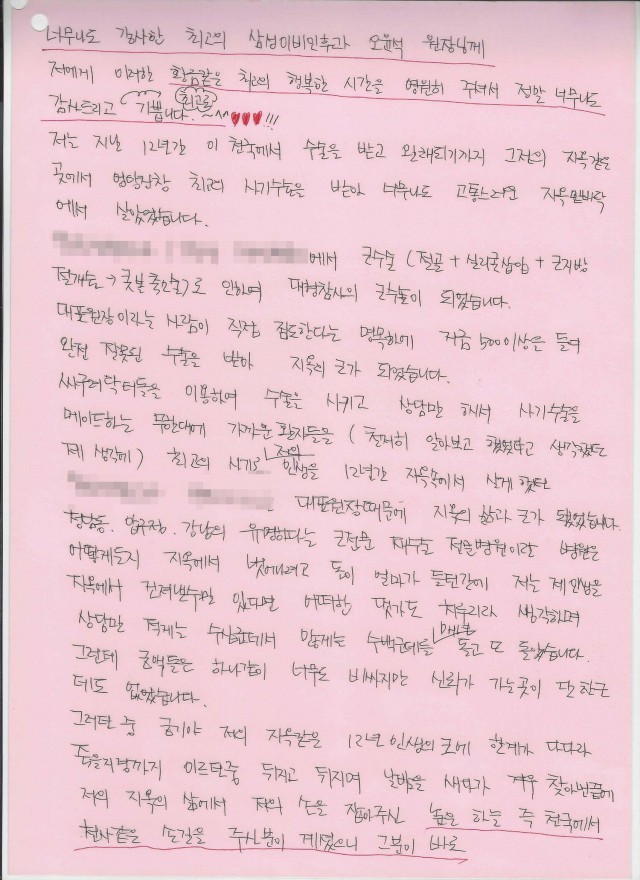 너무나도 감사한 최고의 삼성이비인후과 오윤석 원장님께
저에게 이러한 황금같은 최고의 행복한 시간을 영원히 주셔서 정말 너무나도
최고로
감사드리고 기쁩니다. ~^^ ♥♥♥!!!
저는 지난 12년간 이 천국에서 수술을 받고 완쾌되기까지 그전의 지옥같은
곳에서 엉망진창 최고의 사기수술을 받아 너무나도 고통스러면 지옥밑바닥
에서 살았었습니다.
에서 코수술 (절골 + 실리콘삽입 + 코지방
절개술 → 콧볼축소술)로 인하여 대형참사의 코수술이 되었습니다.
대표원장이라는 사람이 직접 집도한다는 명목하에 거금 500이상을 들여
완전 잘못된 수술을 받아 지옥의 코가 되었습니다.
싸구려닥터들을 이용하여 수술을 시키고 상담만 해서 사기수술을
메이드하는 무한대에 가까운 환자들을 (천저히 알아보고 했었다고 생각했던
저의
제 생각에) 최고의 사기로 인생을 12년간 지옥속에서 살게 했던
대표원장때문에 지옥의 삶과 코가 됐었습니다.
청담동. 압구정. 강남의 유명하다는 코전문 재수술 전문병원이란 병원은
어떻게든지 지옥에서 벗어나려고 돈이 얼마가 들던간에 저는 제인생을
지옥에서 건져낼수만 있다면 어떠한 댓가도 치루리라 생각하며
상담만 적게는 수십군데에서 많게는 수백군데를 돌고 또 돌았습니다.
그런데 금액들은 하나같이 너무도 비싸지만 신뢰가 가는곳이 단 한군
데도 없었습니다.
그러던 중 급기야 저의 지옥같은 12년 인생의 코에 한계가 다다라
죽을지경까지 이르던중 뒤지고 뒤지며 날밤을 새다가 겨우 찾아낸끝에
저의 지옥의 삶에서 저의 손을 잡아주신 높은 하늘 즉 천국에서
천사같은 손길을 주신분이 계셨으니 그분이 바로